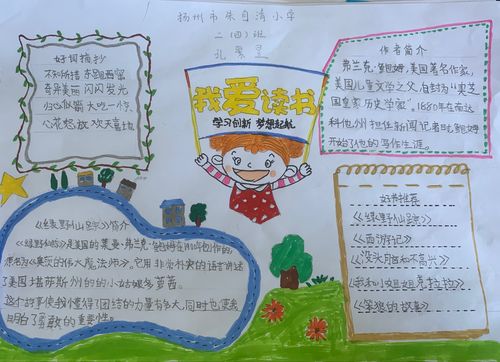 扬州市朱自清小学
二（四）班
孔
好词摘抄
不知所措 东跑西窜
奇异美丽 闪闪发光
归心似箭 大吃一惊
心花怒放 欢天喜地
我爱读书
学习创新 梦想起航
作者简介
弗兰克·鲍姆,美国著名作家,
美国儿童文学之父,自封为“奥芝
国皇家历史学家”。1880年在南达
科他州担任新闻记者时,鲍姆
开始了他的写作生涯。
《绿野仙踪》简介
《绿野仙踪》是美国的莱曼·弗兰克·鲍姆在1900年创作的,
原名为《奥茨的伟大魔法师》。它用非常朴实的语言讲述
了美国堪萨斯州的的小姑娘多萝茜。
这个故事使我懂得了团结的力量有多大,同时也
明白了勇敢的重要性。
好书推荐
《绿野仙踪》
《西游记》
《没头脑和不高兴》
《我和小姐姐克拉拉》
《笨狼的故事》